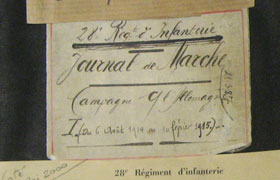 28e Regt d'Infanterie
Journal de Marche
Campagne C/ l'Allemagne
I (du 6 Août 1914 au 10 février 1915).
28e Régiment d'infanterie
2000